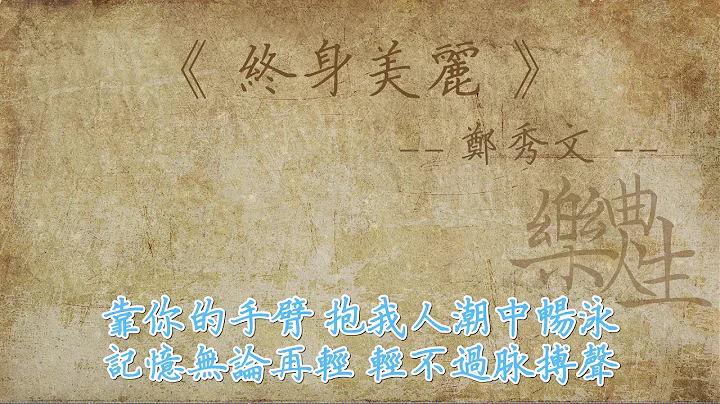 《 終身美麗 》
-- 鄭秀文 --
樂曲人生
靠你的手臂 抱我人潮中暢泳
記憶無論再輕 輕不過脉搏聲